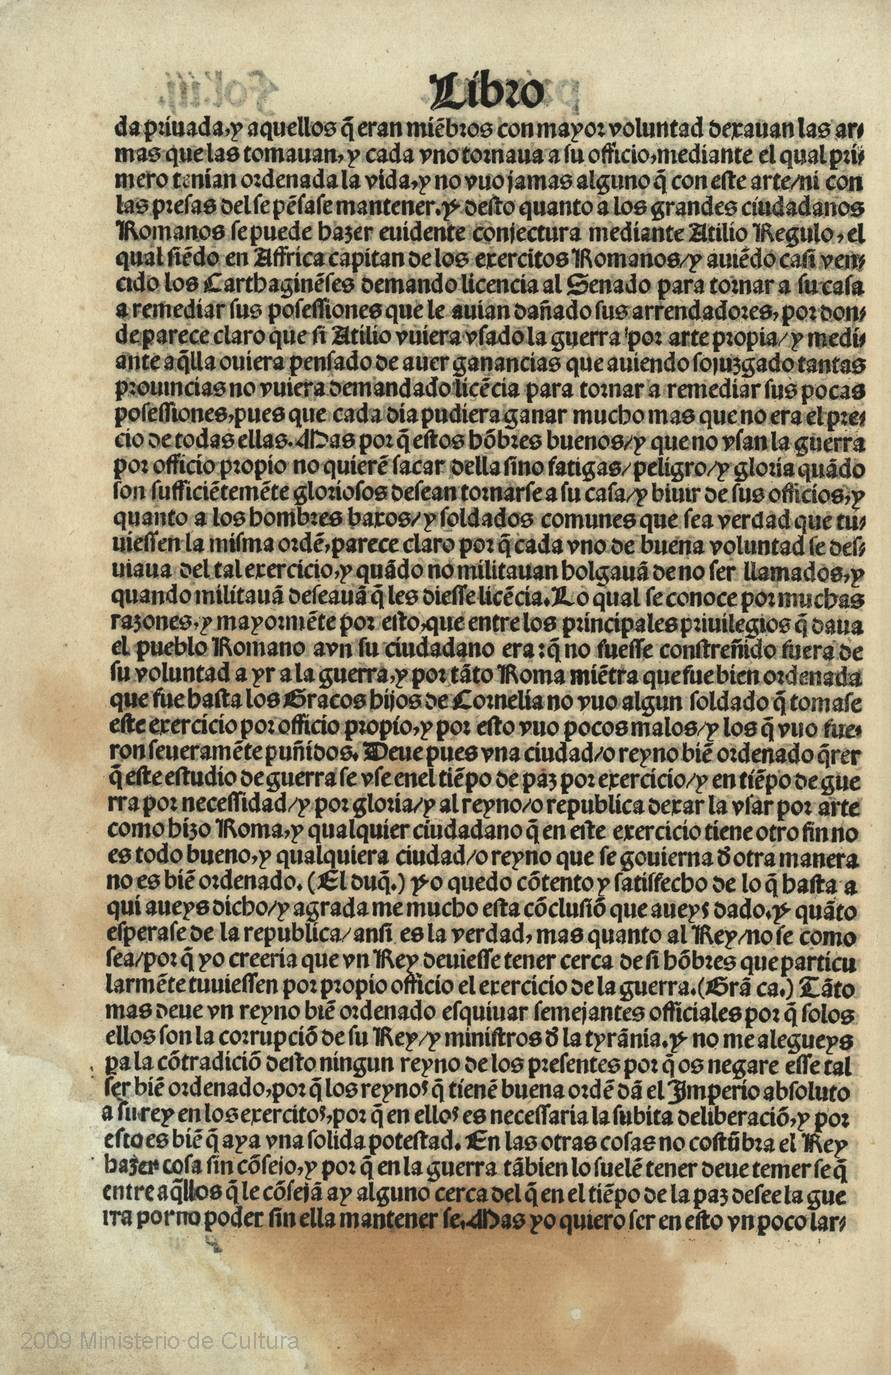 Libro
da priuada, y aquellos q̃ eran miẽbros con mayor voluntad dexauan las ar-
mas que las tomauan, y cada vno tornaua a su officio, mediante el qual pri-
mero tenian ordenada la vida, y no vuo jamas alguno q̃ con este arte/ni con
las presas del se pẽsase mantener. Y desto quanto a los grandes ciudadanos
Romanos se puede hazer euidente conjectura mediante Atilio Regulo, el
qual siẽdo en Affrica capitan de los exercitos Romanos/y auiẽdo casi ven-
cido los Carthaginẽses demando licencia al Senado para tornar a su casa
a remediar sus posessiones que le auian dañado sus arrendadores, por don-
de parece claro que si Atilio vuiera vsado la guerra por arte propia/y medi-
ante aq̃lla ouiera pensado de auer ganancias que auiendo sojuzgado tantas
prouincias no vuiera demandado licẽcia para tornar a remediar sus pocas
posessiones, pues que cada dia pudiera ganar mucho mas que no era el pre-
cio de todas ellas. Mas por q̃ estos hõbres buenos/y que no vsan la guerra
por officio propio no quierẽ sacar della sino fatigas/peligro/y gloria quãdo
son sufficiẽtemẽte gloriosos desean tornarse a su casa/y biuir de sus officios, y
quanto a los hombres baxos/y soldados comunes que sea verdad que tu-
uiessen la misma ordẽ, parece claro por q̃ cada vno de buena voluntad se des-
uiaua del tal exercicio, y quãdo no militauan holgauã de no ser llamados, y
quando militauã deseauã q̃ les diesse licẽcia. Lo qual se conoce por muchas
razones, y mayormẽte por esto, que entre los principales priuilegios q̃ daua
el pueblo Romano a vn su ciudadano era: q̃ no fuesse constreñido fuera de
su voluntad a yr a la guerra, y por tãto Roma miẽtra que fue bien ordenada
que fue hasta los Gracos hijos de Cornelia no vuo algun soldado q̃ tomase
este exercicio por officio propio, y por esto vuo pocos malos/y los q̃ vuo fue-
ron seueramẽte puñidos. Deue pues vna ciudad/o reyno biẽ ordenado q̃rer
q̃ este estudio de guerra se vse enel tiẽpo de paz por exercicio/y en tiẽpo de gue
rra por necessidad/y por gloria/y al reyno/o republica dexar la vsar por arte
como hizo Roma, y qualquier ciudadano q̃ en este exercicio tiene otro fin no
es todo bueno, y qualquiera ciudad/o reyno que se gouierna d̃ otra manera
no es biẽ ordenado. (El duq̃.) Yo quedo cõtento y satisfecho de lo q̃ hasta a
qui aueys dicho/y agrada me mucho esta cõclusiõ que aueys dado. Y quãto
esperase de la republica/ansi es la verdad, mas quanto al Rey/no se como
sea/por q̃ yo creeria que vn Rey deuiesse tener cerca de si hõbres que particu
larmẽte tuuiessen por propio officio el exercicio de la guerra. (Grã ca.) Tãto
mas deue vn reyno biẽ ordenado esquiuar semejantes officiales por q̃ solos
ellos son la corrupciõ de su Rey/y ministros d̃ la tyrãnia. Y no me alegueys
pa la cõtradiciõ desto ningun reyno de los presentes por q̃ os negare esse tal
ser biẽ ordenado, por q̃ los reynos q̃ tienẽ buena ordẽ dã el Imperio absoluto
a su rey en los exercitos, por q̃ en ellos es necessaria la subita deliberaciõ, y por
esto es biẽ q̃ aya vna solida potestad. En las otras cosas no costũbra el Rey
hazer cosa sin cõsejo, y por q̃ en la guerra tãbien lo suelẽ tener deue temer se q̃
entre aq̃llos q̃ le cõsejã ay alguno cerca del q̃ en el tiẽpo de la paz desee la gue
rra por no poder sin ella mantener se. Mas yo quiero ser en esto vn poco lar-
2009 Ministerio de Cultura